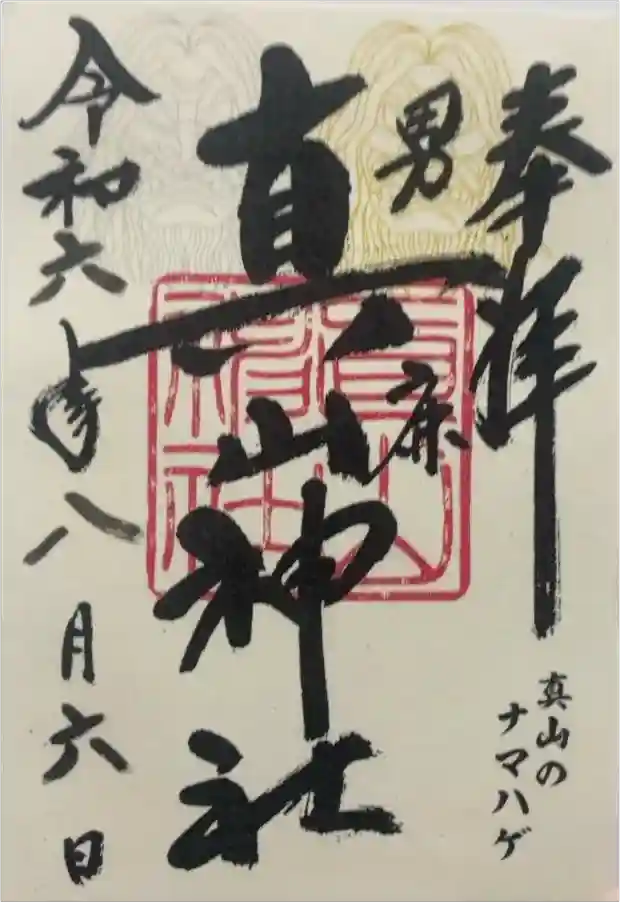 奉拝
真山の
ナマハゲ
男鹿
真山神社
令和六年八月六日